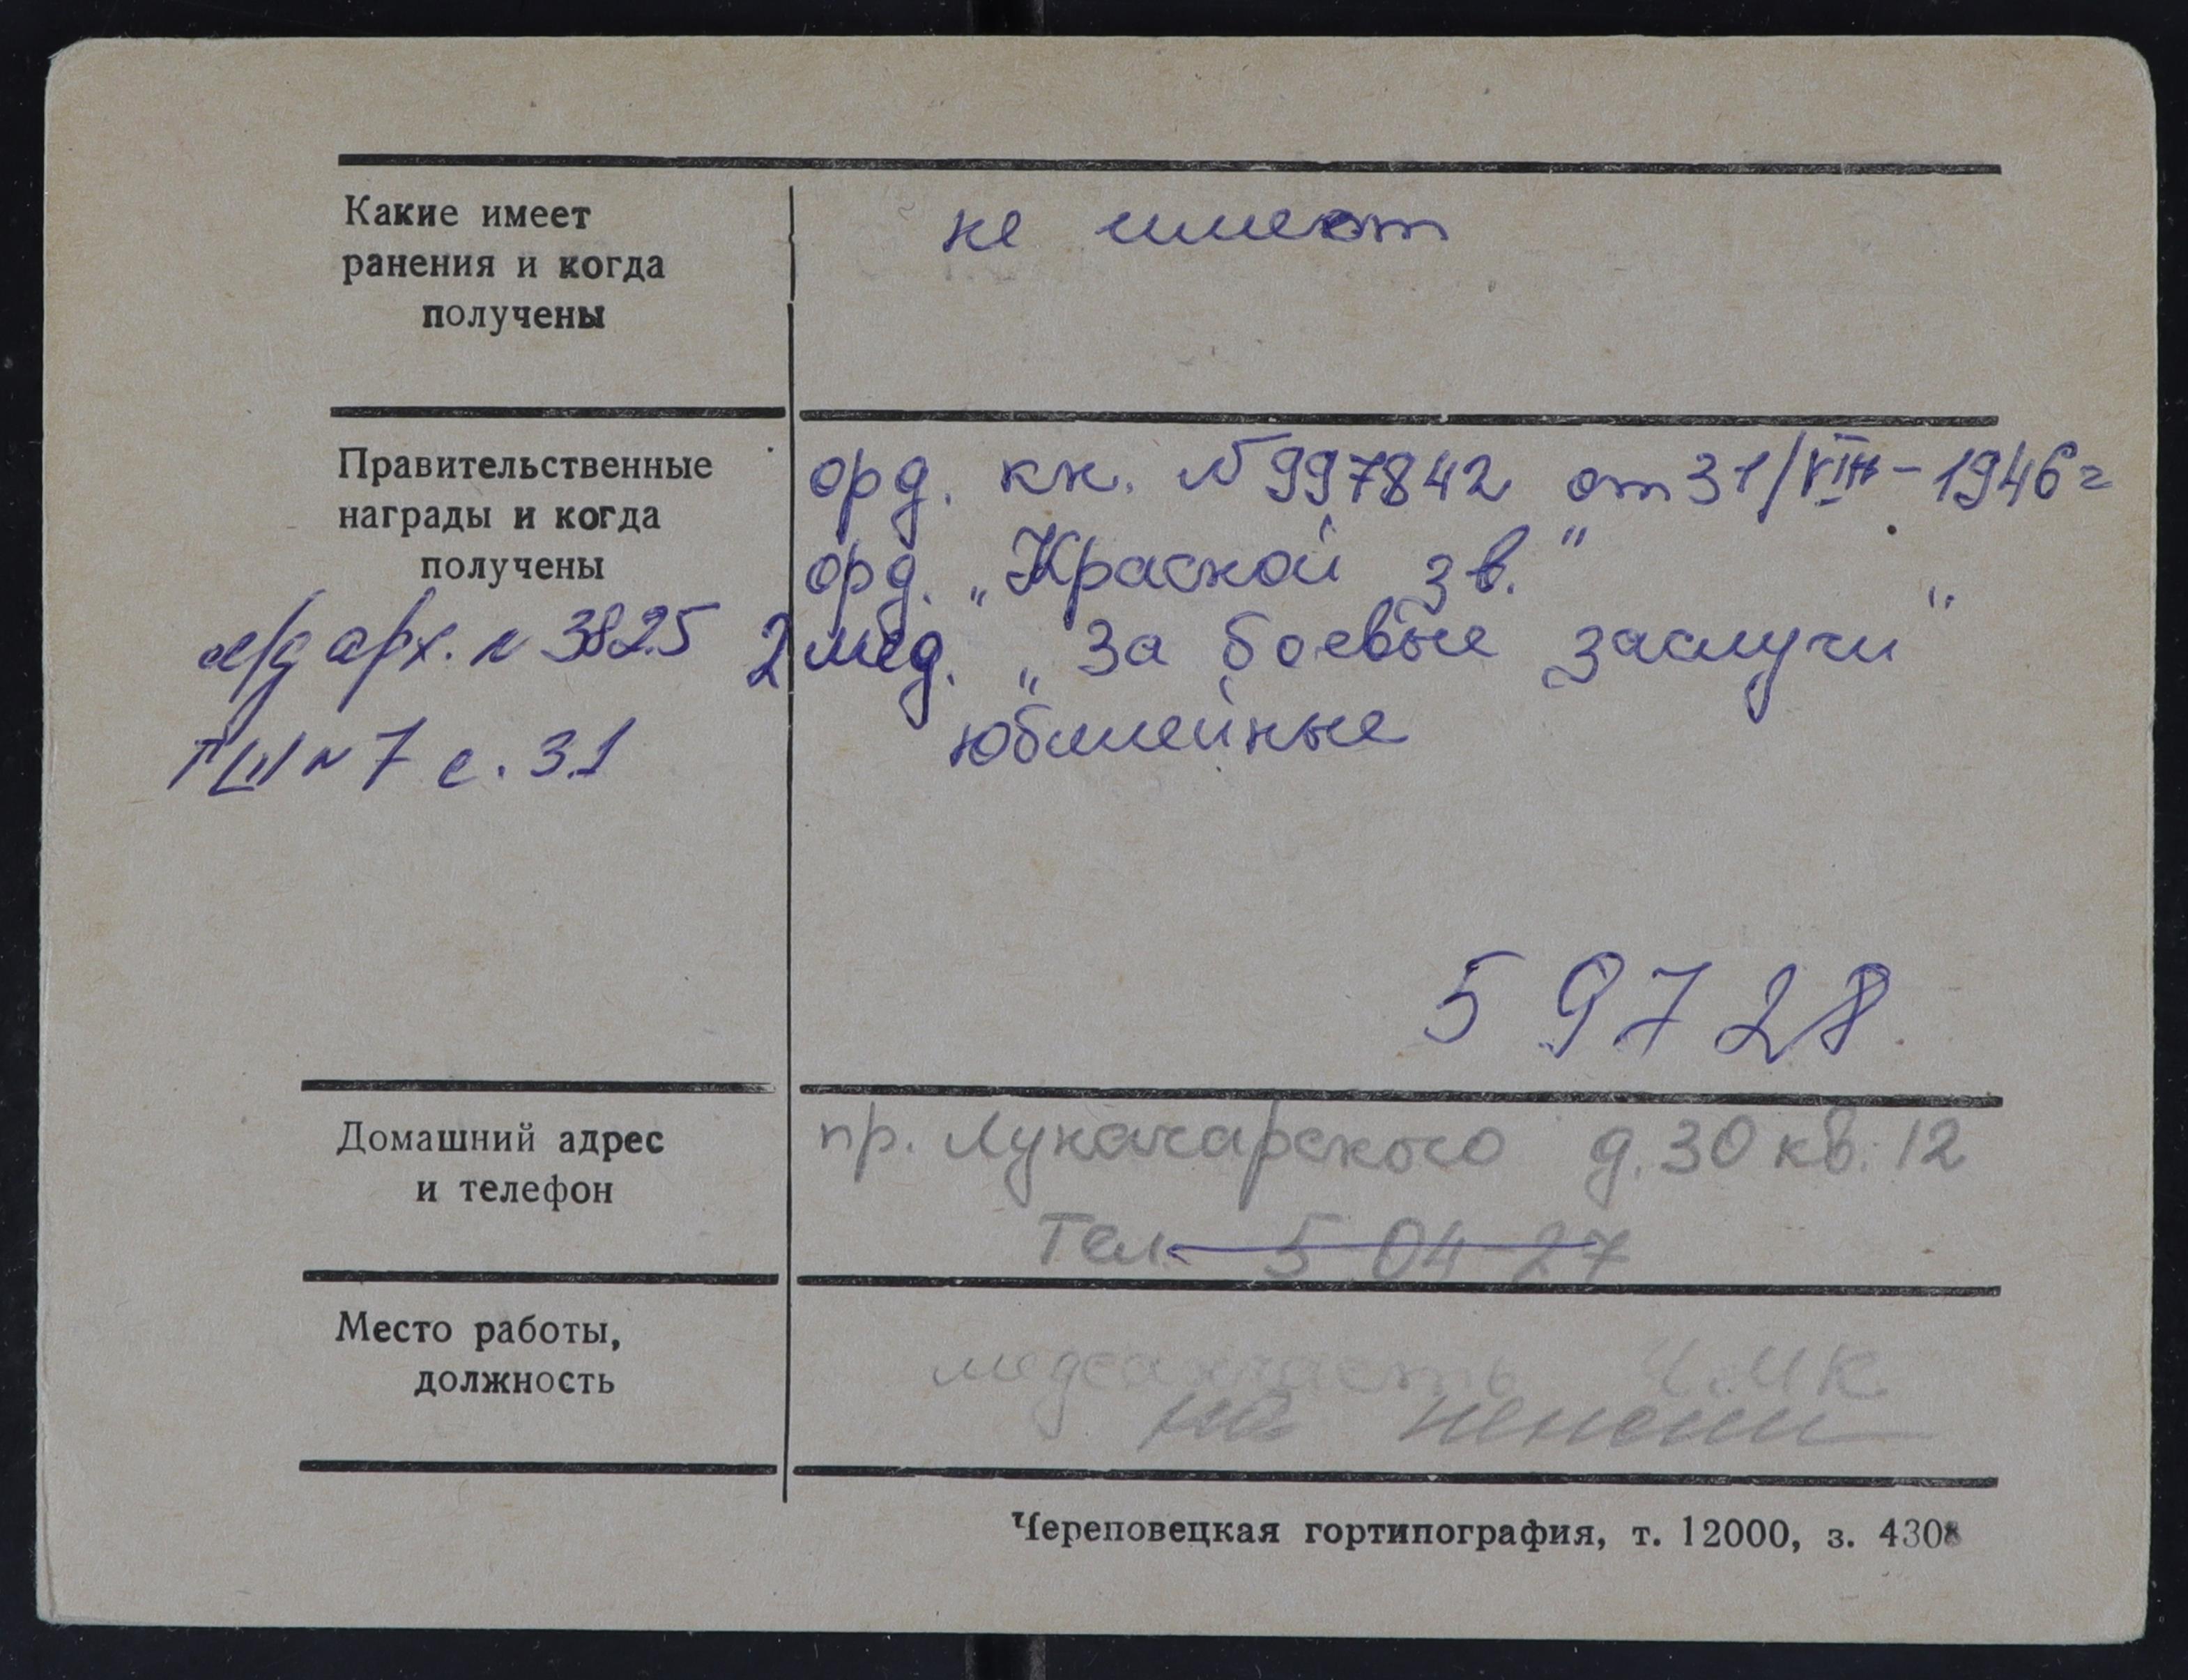 Какие имеет
ранения и когда
получены
не имеет
Правительственные
награды и когда
получены
орд. кн. N 997842 от 31/VIII - 1946 г
орд. „Красной зв."
2 мед. „За боевые заслуги"
юбилейные
л/д арх. N 3825
N 7 с. 31
59728
Домашний адрес
и телефон
пр. Луначарского д. 30 кв. 12
Тел. 5-04-27
Место работы,
должность
медсанчасть Ч.М.К.
на пенсии
Череповецкая гортипография, т. 12000, з. 4308